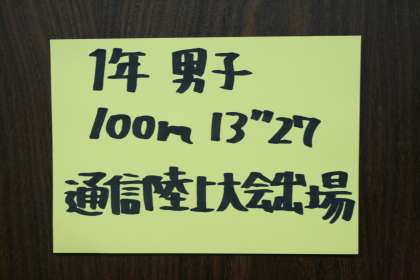 1年 男子
100m 13"27
通信陸上大会出場